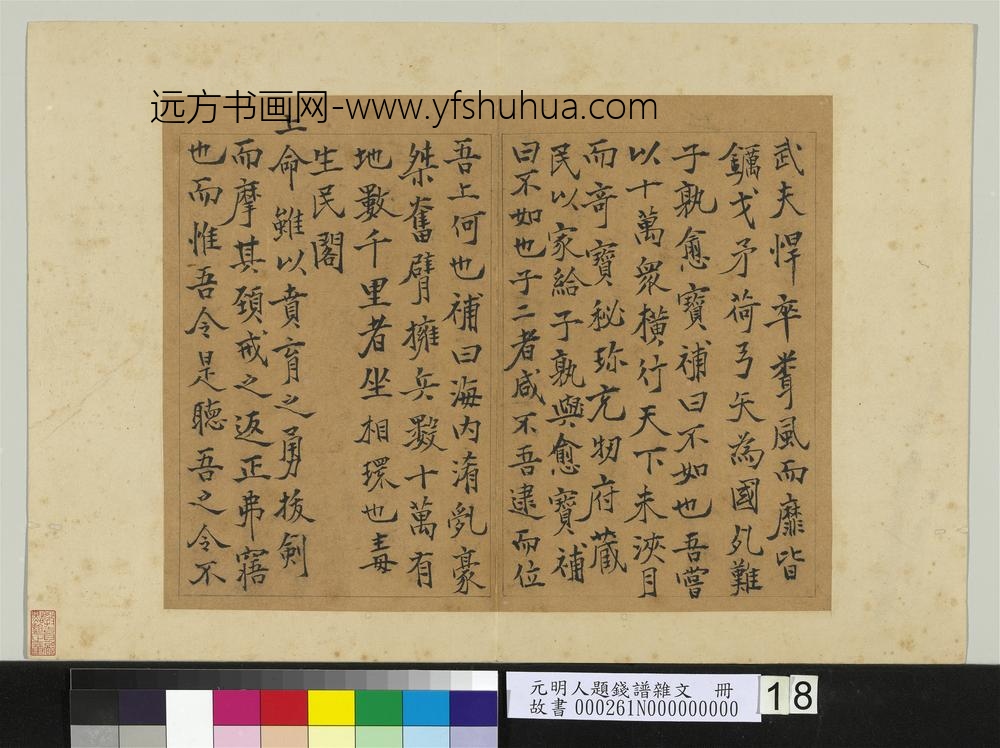 远方书画网-www.yfshuhua.com
武夫悍卒聾風而靡皆
鑴戈矛荷弓矢為國死難
子孰愈寶補曰不如也吾嘗
以十萬衆橫行天下未浹月
而奇寶秘珎充牣府藏
民以家給子孰與愈寶補
曰不如也子二者咸不吾逮而位
吾上何也補曰海内淆亂豪
桀奮臂擁兵數十萬有
地數千里者坐相環也毒
生民閣
上命雖以賁育之勇拔劍
而摩其頚戒之返正弗寤
也而惟吾令是聴吾之令不
元明人題錢譜雜文 冊
故書 000261N000000000
18